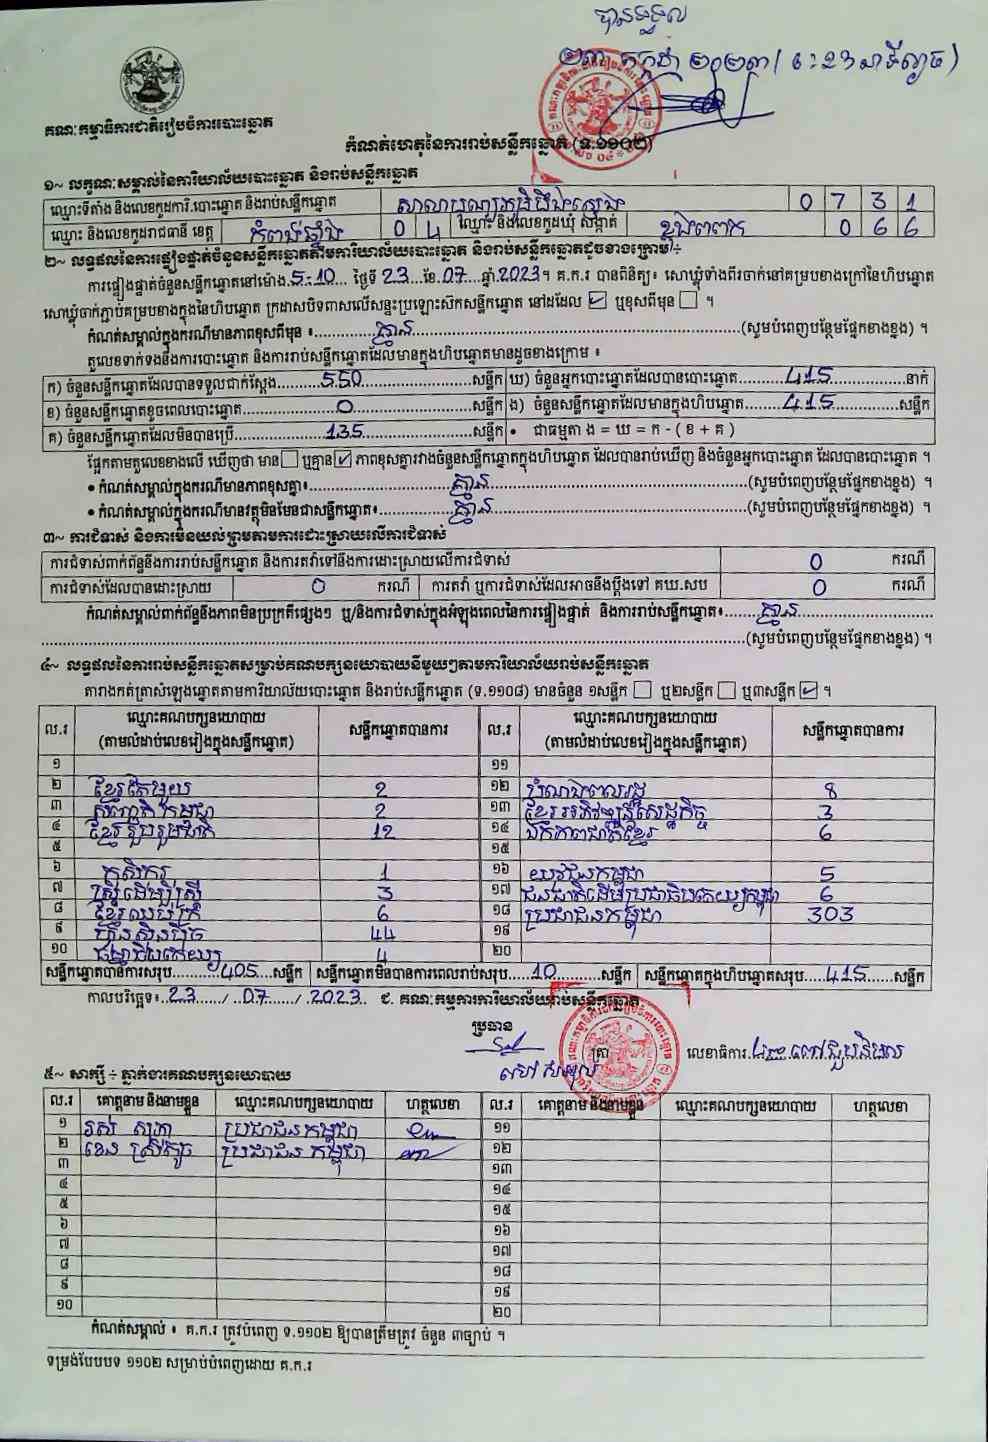 បានទទួល
២៣ កក្កដា ២០២៣ ( ៤:23 នាទីល្ងាច )
គណៈកម្មាធិការជាតិរៀបចំការបោះឆ្នោត
កំណត់ហេតុនៃការរាប់សន្លឹកឆ្នោត (ទ.១១០២)
១~ លក្ខណៈសម្គាល់នៃការិយាល័យបោះឆ្នោត និងរាប់សន្លឹកឆ្នោត
ឈ្មោះទីតាំង និងលេខកូដការិ.បោះឆ្នោត និងរាប់សន្លឹកឆ្នោត 0 7 3 1
ឈ្មោះ និងលេខកូដរាជធានី ខេត្ត កំពង់ឆ្នាំង 0 4 ឈ្មោះ និងលេខកូដឃុំ សង្កាត់ 0 6 6
២~ លទ្ធផលនៃការផ្ទៀងផ្ទាត់ចំនួនសន្លឹកឆ្នោតតាមការិយាល័យបោះឆ្នោត និងរាប់សន្លឹកឆ្នោតដូចខាងក្រោម ÷
ការផ្ទៀងផ្ទាត់ចំនួនសន្លឹកឆ្នោតនៅម៉ោង.5-10... ថ្ងៃទី 23 ខែ.07 ឆ្នាំ.2023។ គ.ក.រ បានពិនិត្យ៖ សោឃ្លុំទាំងពីរចាក់នៅគម្របខាងក្រៅនៃហិបឆ្នោត
សោឃ្លុំចាក់ភ្ជាប់គម្របខាងក្នុងនៃហិបឆ្នោត ក្រដាសបិទពាសលើសន្ទះប្រឡោះស៊កសន្លឹកឆ្នោត នៅដដែល ☑ ឬខុសពីមុន ☐ ។
កំណត់សម្គាល់ក្នុងករណីមានភាពខុសពីមុន ៖ គ្មាន (សូមបំពេញបន្ថែមផ្នែកខាងខ្នង) ។
តួលេខទាក់ទងនឹងការបោះឆ្នោត និងការរាប់សន្លឹកឆ្នោតដែលមានក្នុងហិបឆ្នោតមានដូចខាងក្រោម ៖
ក) ចំនួនសន្លឹកឆ្នោតដែលបានទទួលជាក់ស្ដែង 550 សន្លឹក ឃ) ចំនួនអ្នកបោះឆ្នោតដែលបានបោះឆ្នោត 415 នាក់
ខ) ចំនួនសន្លឹកឆ្នោតខូចពេលបោះឆ្នោត 0 សន្លឹក ង) ចំនួនសន្លឹកឆ្នោតដែលមានក្នុងហិបឆ្នោត 415 សន្លឹក
គ) ចំនួនសន្លឹកឆ្នោតដែលមិនបានប្រើ 135 សន្លឹក • ជាធម្មតា ង = ឃ = ក - ( ខ + គ )
ផ្អែកតាមតួលេខខាងលើ ឃើញថា មាន ☐ ឬគ្មាន ☑ ភាពខុសគ្នារវាងចំនួនសន្លឹកឆ្នោតក្នុងហិបឆ្នោត ដែលបានរាប់ឃើញ និងចំនួនអ្នកបោះឆ្នោត ដែលបានបោះឆ្នោត ។
• កំណត់សម្គាល់ក្នុងករណីមានភាពខុសគ្នា៖ គ្មាន (សូមបំពេញបន្ថែមផ្នែកខាងខ្នង) ។
• កំណត់សម្គាល់ក្នុងករណីមានវត្ថុមិនមែនជាសន្លឹកឆ្នោត៖ គ្មាន (សូមបំពេញបន្ថែមផ្នែកខាងខ្នង) ។
៣~ ការជំទាស់ និងការមិនយល់ព្រមតាមការដោះស្រាយលើការជំទាស់
ការជំទាស់ពាក់ព័ន្ធនឹងការរាប់សន្លឹកឆ្នោត និងការតវ៉ាទៅនឹងការដោះស្រាយលើការជំទាស់ 0 ករណី
ការជំទាស់ដែលបានដោះស្រាយ 0 ករណី ការតវ៉ា ឬការជំទាស់ដែលអាចនឹងប្ដឹងទៅ គឃ.សប 0 ករណី
កំណត់សម្គាល់ពាក់ព័ន្ធនឹងភាពមិនប្រក្រតីផ្សេងៗ ឬ/និងការជំទាស់ក្នុងអំឡុងពេលនៃការផ្ទៀងផ្ទាត់ និងការរាប់សន្លឹកឆ្នោត៖ គ្មាន
(សូមបំពេញបន្ថែមផ្នែកខាងខ្នង) ។
៤~ លទ្ធផលនៃការរាប់សន្លឹកឆ្នោតសម្រាប់គណបក្សនយោបាយនីមួយៗតាមការិយាល័យរាប់សន្លឹកឆ្នោត
តារាងកត់ត្រាសំឡេងឆ្នោតតាមការិយាល័យបោះឆ្នោត និងរាប់សន្លឹកឆ្នោត (ទ.១១០៨) មានចំនួន ១សន្លឹក ☐ ឬ២សន្លឹក ☐ ឬ៣សន្លឹក ☑ ។
ល.រ ឈ្មោះគណបក្សនយោបាយ (តាមលំដាប់លេខរៀងក្នុងសន្លឹកឆ្នោត) សន្លឹកឆ្នោតបានការ ល.រ ឈ្មោះគណបក្សនយោបាយ (តាមលំដាប់លេខរៀងក្នុងសន្លឹកឆ្នោត) សន្លឹកឆ្នោតបានការ
១ ១១
២ ខ្មែរតែមួយ 2 ១២ 8
៣ សញ្ជាតិកម្ពុជា 2 ១៣ ខ្មែរអភិវឌ្ឍន៍សេដ្ឋកិច្ច 3
៤ ខ្មែររួបរួមជាតិ 12 ១៤ ឯកភាពជាតិខ្មែរ 6
៥ ១៥
៦ កសិករ 1 ១៦ យុវជនកម្ពុជា 5
៧ ស្ត្រីដើម្បីស្ត្រី 3 ១៧ ជនជាតិដើមប្រជាធិបតេយ្យកម្ពុជា 6
៨ ខ្មែរឈប់ក្រ 6 ១៨ ប្រជាជនកម្ពុជា 303
៩ ហ្វ៊ុនស៊ិនប៉ិច 44 ១៩
១០ ធម្មាធិបតេយ្យ 4 ២០
សន្លឹកឆ្នោតបានការសរុប 405 សន្លឹក សន្លឹកឆ្នោតមិនបានការពេលរាប់សរុប 10 សន្លឹក សន្លឹកឆ្នោតក្នុងហិបឆ្នោតសរុប 415 សន្លឹក
កាលបរិច្ឆេទ៖ 23 / 07 / 2023 ជ. គណៈកម្មការការិយាល័យរាប់សន្លឹកឆ្នោត
ប្រធាន
ត្រា លេខាធិការ
៥~ សាក្សី ÷ ភ្នាក់ងារគណបក្សនយោបាយ
ល.រ គោត្តនាម និងនាមខ្លួន ឈ្មោះគណបក្សនយោបាយ ហត្ថលេខា ល.រ គោត្តនាម និងនាមខ្លួន ឈ្មោះគណបក្សនយោបាយ ហត្ថលេខា
១ ប្រជាជនកម្ពុជា ១១
២ ខេង ស្រីតូច ប្រជាជនកម្ពុជា ១២
៣ ១៣
៤ ១៤
៥ ១៥
៦ ១៦
៧ ១៧
៨ ១៨
៩ ១៩
១០ ២០
កំណត់សម្គាល់ ៖ គ.ក.រ ត្រូវបំពេញ ទ.១១០២ ឱ្យបានត្រឹមត្រូវ ចំនួន ៣ច្បាប់ ។
ទម្រង់បែបបទ ១១០២ សម្រាប់បំពេញដោយ គ.ក.រ